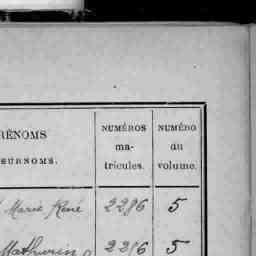 RÉNOMS
SURNOMS.
NUMÉROS
ma-
tricules.
NUMÉRO
du
volume.
Marie René 2286 5
Mathurin 2216 5